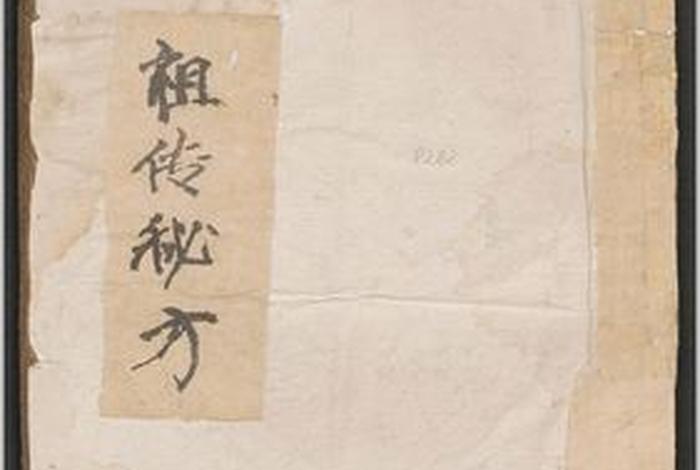 祖传秘方
P282